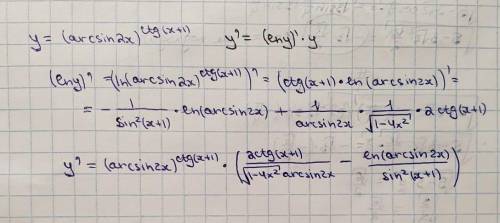 y = (arcsin2x)^ctg(x+1)   y' = (lny)'·y
(lny)' = (ln(arcsin2x)^ctg(x+1))' = (ctg(x+1)·ln(arcsin2x))' =
= - 1/sin²(x+1) · ln(arcsin2x) + 1/arcsin2x · 1/√(1-4x²) · 2ctg(x+1)
y' = (arcsin2x)^ctg(x+1) · (2ctg(x+1)/(√(1-4x²) arcsin2x) - ln(arcsin2x)/sin²(x+1))